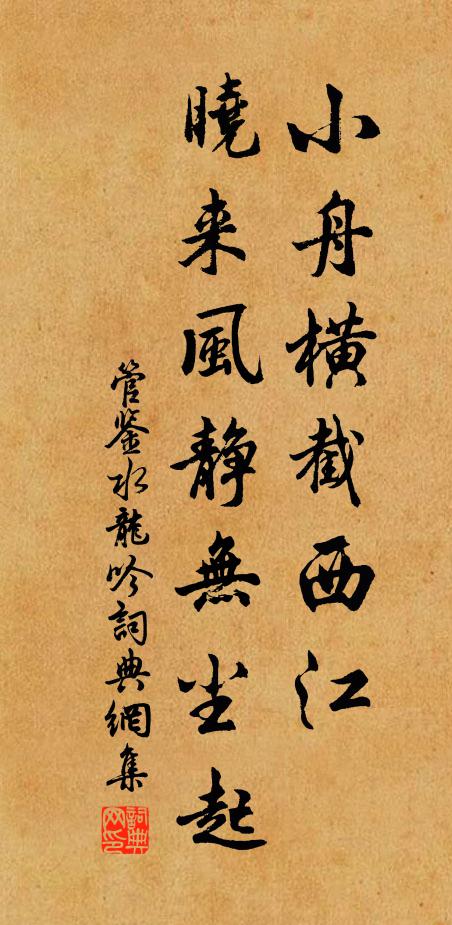 小舟橫截西江
曉来風静無尘起
管鉴水龍吟詞典網集
詞典网印